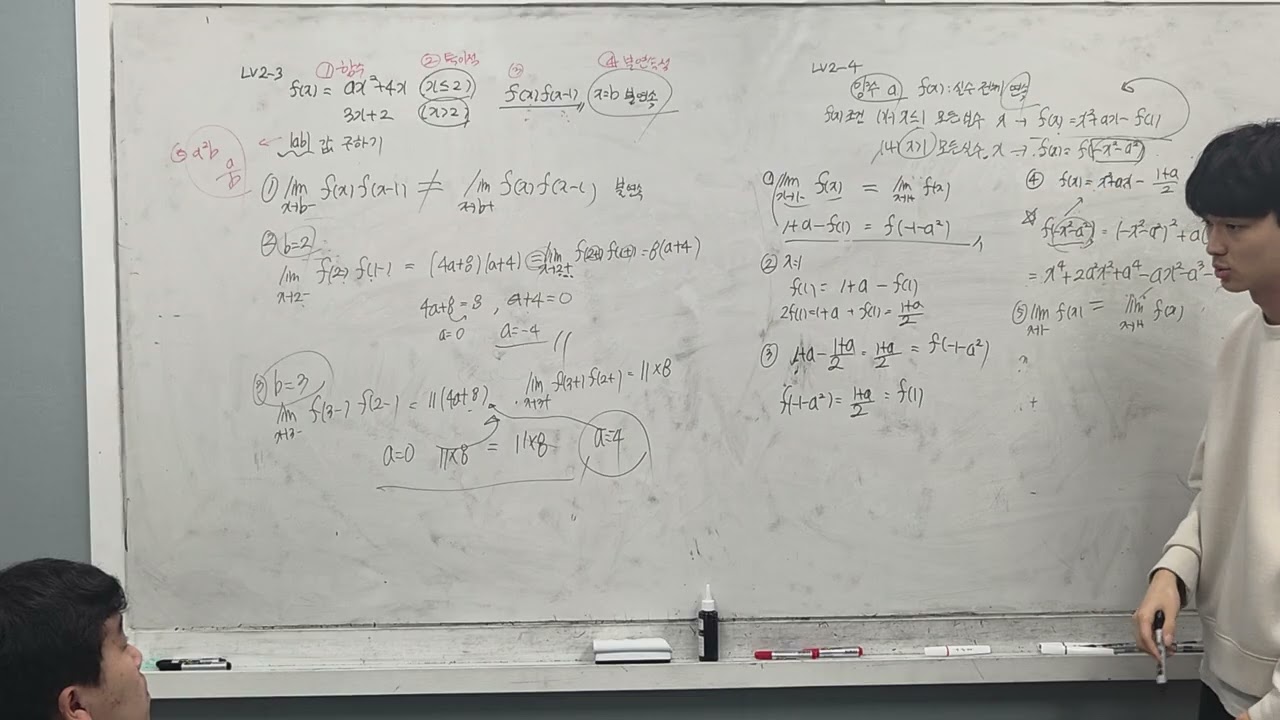 LV2-3 ① 함수 ② 특이점 ③ ④ 불연속성
f(x) = ax²+4x (x≤2) f(x)f(x-1), x=b 불연속
3x+2 (x>2)
⑤ a²b ← |ab| 값 구하기
a/b
① lim x→b- f(x)f(x-1) ≠ lim x→b+ f(x)f(x-1) 불연속
② b=2
lim x→2- f(2-)f(1-) = (4a+8)(a+4) = lim x→2+ f(2+)f(1+) = 8(a+4)
4a+8=8, a+4=0
a=0 a=-4
③ b=3
lim x→3- f(3-)f(2-) = 11(4a+8) lim x→3+ f(3+)f(2+) = 11×8
a=0 11×8 = 11×8 a=4
LV2-4
양수 a f(x): 실수 전체 연속
f(x) 조건 (가) x≤1 모든 실수 x → f(x)=x²+ax-f(1)
(나) x>1 모든 실수 x → f(x)=f(-x²-a²)
① lim x→1- f(x) = lim x→1+ f(x)
1+a-f(1) = f(-1-a²)
② x=1
f(1) = 1+a - f(1)
2f(1)=1+a → f(1)= 1+a/2
③ 1+a- 1+a/2 = 1+a/2 = f(-1-a²)
f(-1-a²)= 1+a/2 = f(1)
④ f(x)= x²+ax - 1+a/2
f(-x²-a²) = (-x²-a²)²+a(
= x⁴+2a²x²+a⁴-ax²-a³-
⑤ lim x→1- f(x) = lim x→1+ f(x)